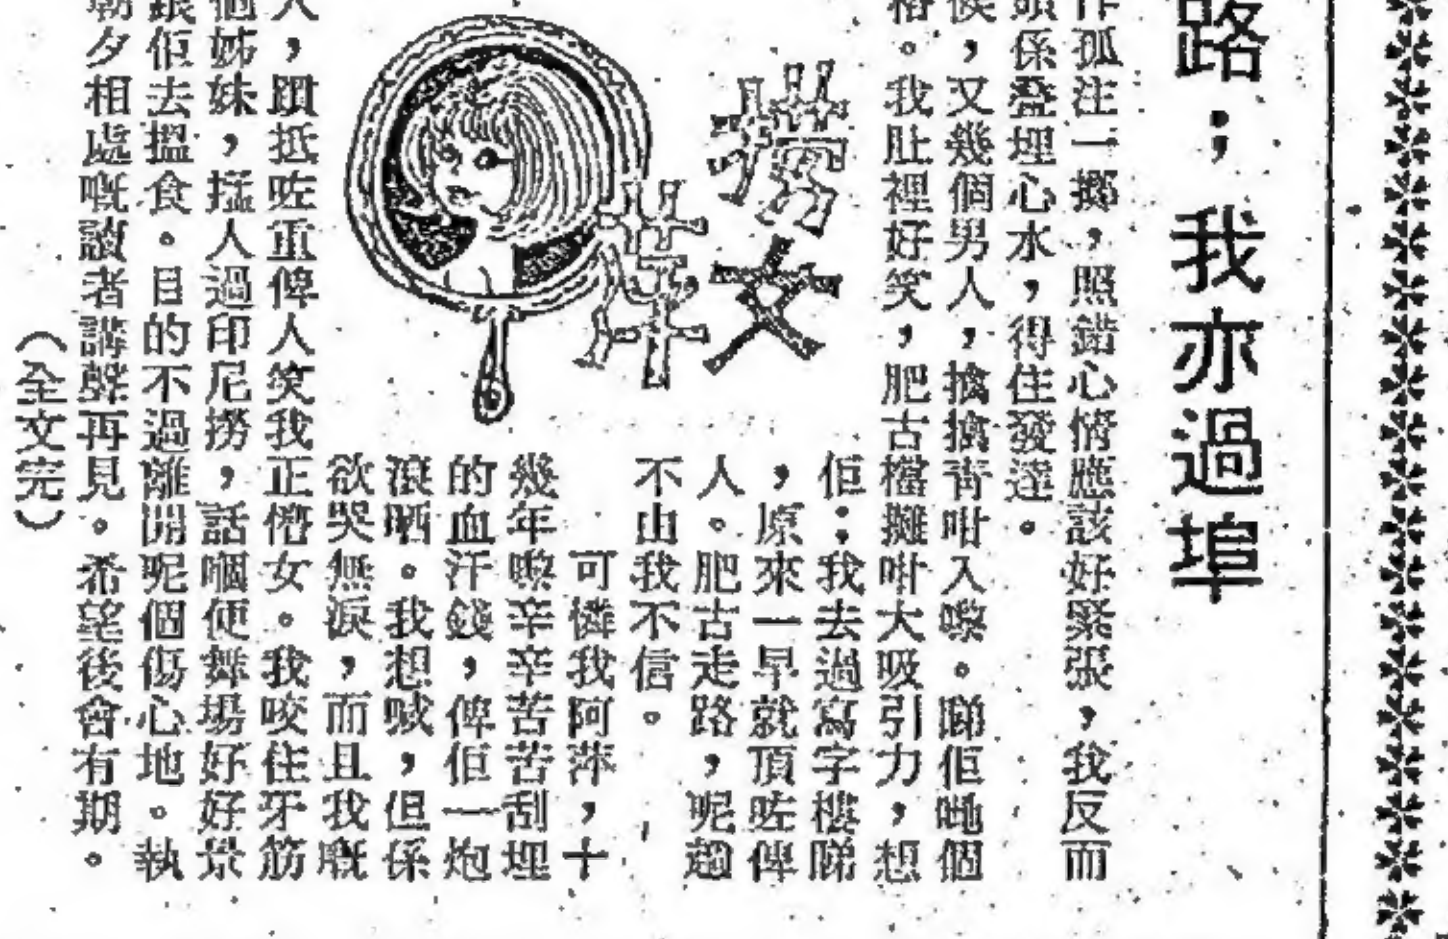 路；我亦過埠
作孤注一擲，照錯心情應該好緊張，我反而
頭係疊埋心水，得住發達。
候，又幾個男人，擒擒青咁入嚟。睇佢哋個
格。我肚裡好笑，肥古檔攤咁大吸引力，想
佢；我去過寫字樓睇
，原來一早就頂咗俾
人。肥古走路，呢趟
不由我不信。
可憐我阿萍，十
幾年嚟辛辛苦苦刮埋
的血汗錢，俾佢一炮
滾晒。我想喊，但係
欲哭無淚，而且我嘅
人，躓抵咗重俾人笑我正懵女。我咬住牙筋
個姊妹，搵人過印尼撈，話嗰便舞場好好景
跟佢去搵食。目的不過離開呢個傷心地。執
朝夕相處嘅讀者講聲再見。希望後會有期。
（全文完）
撈女